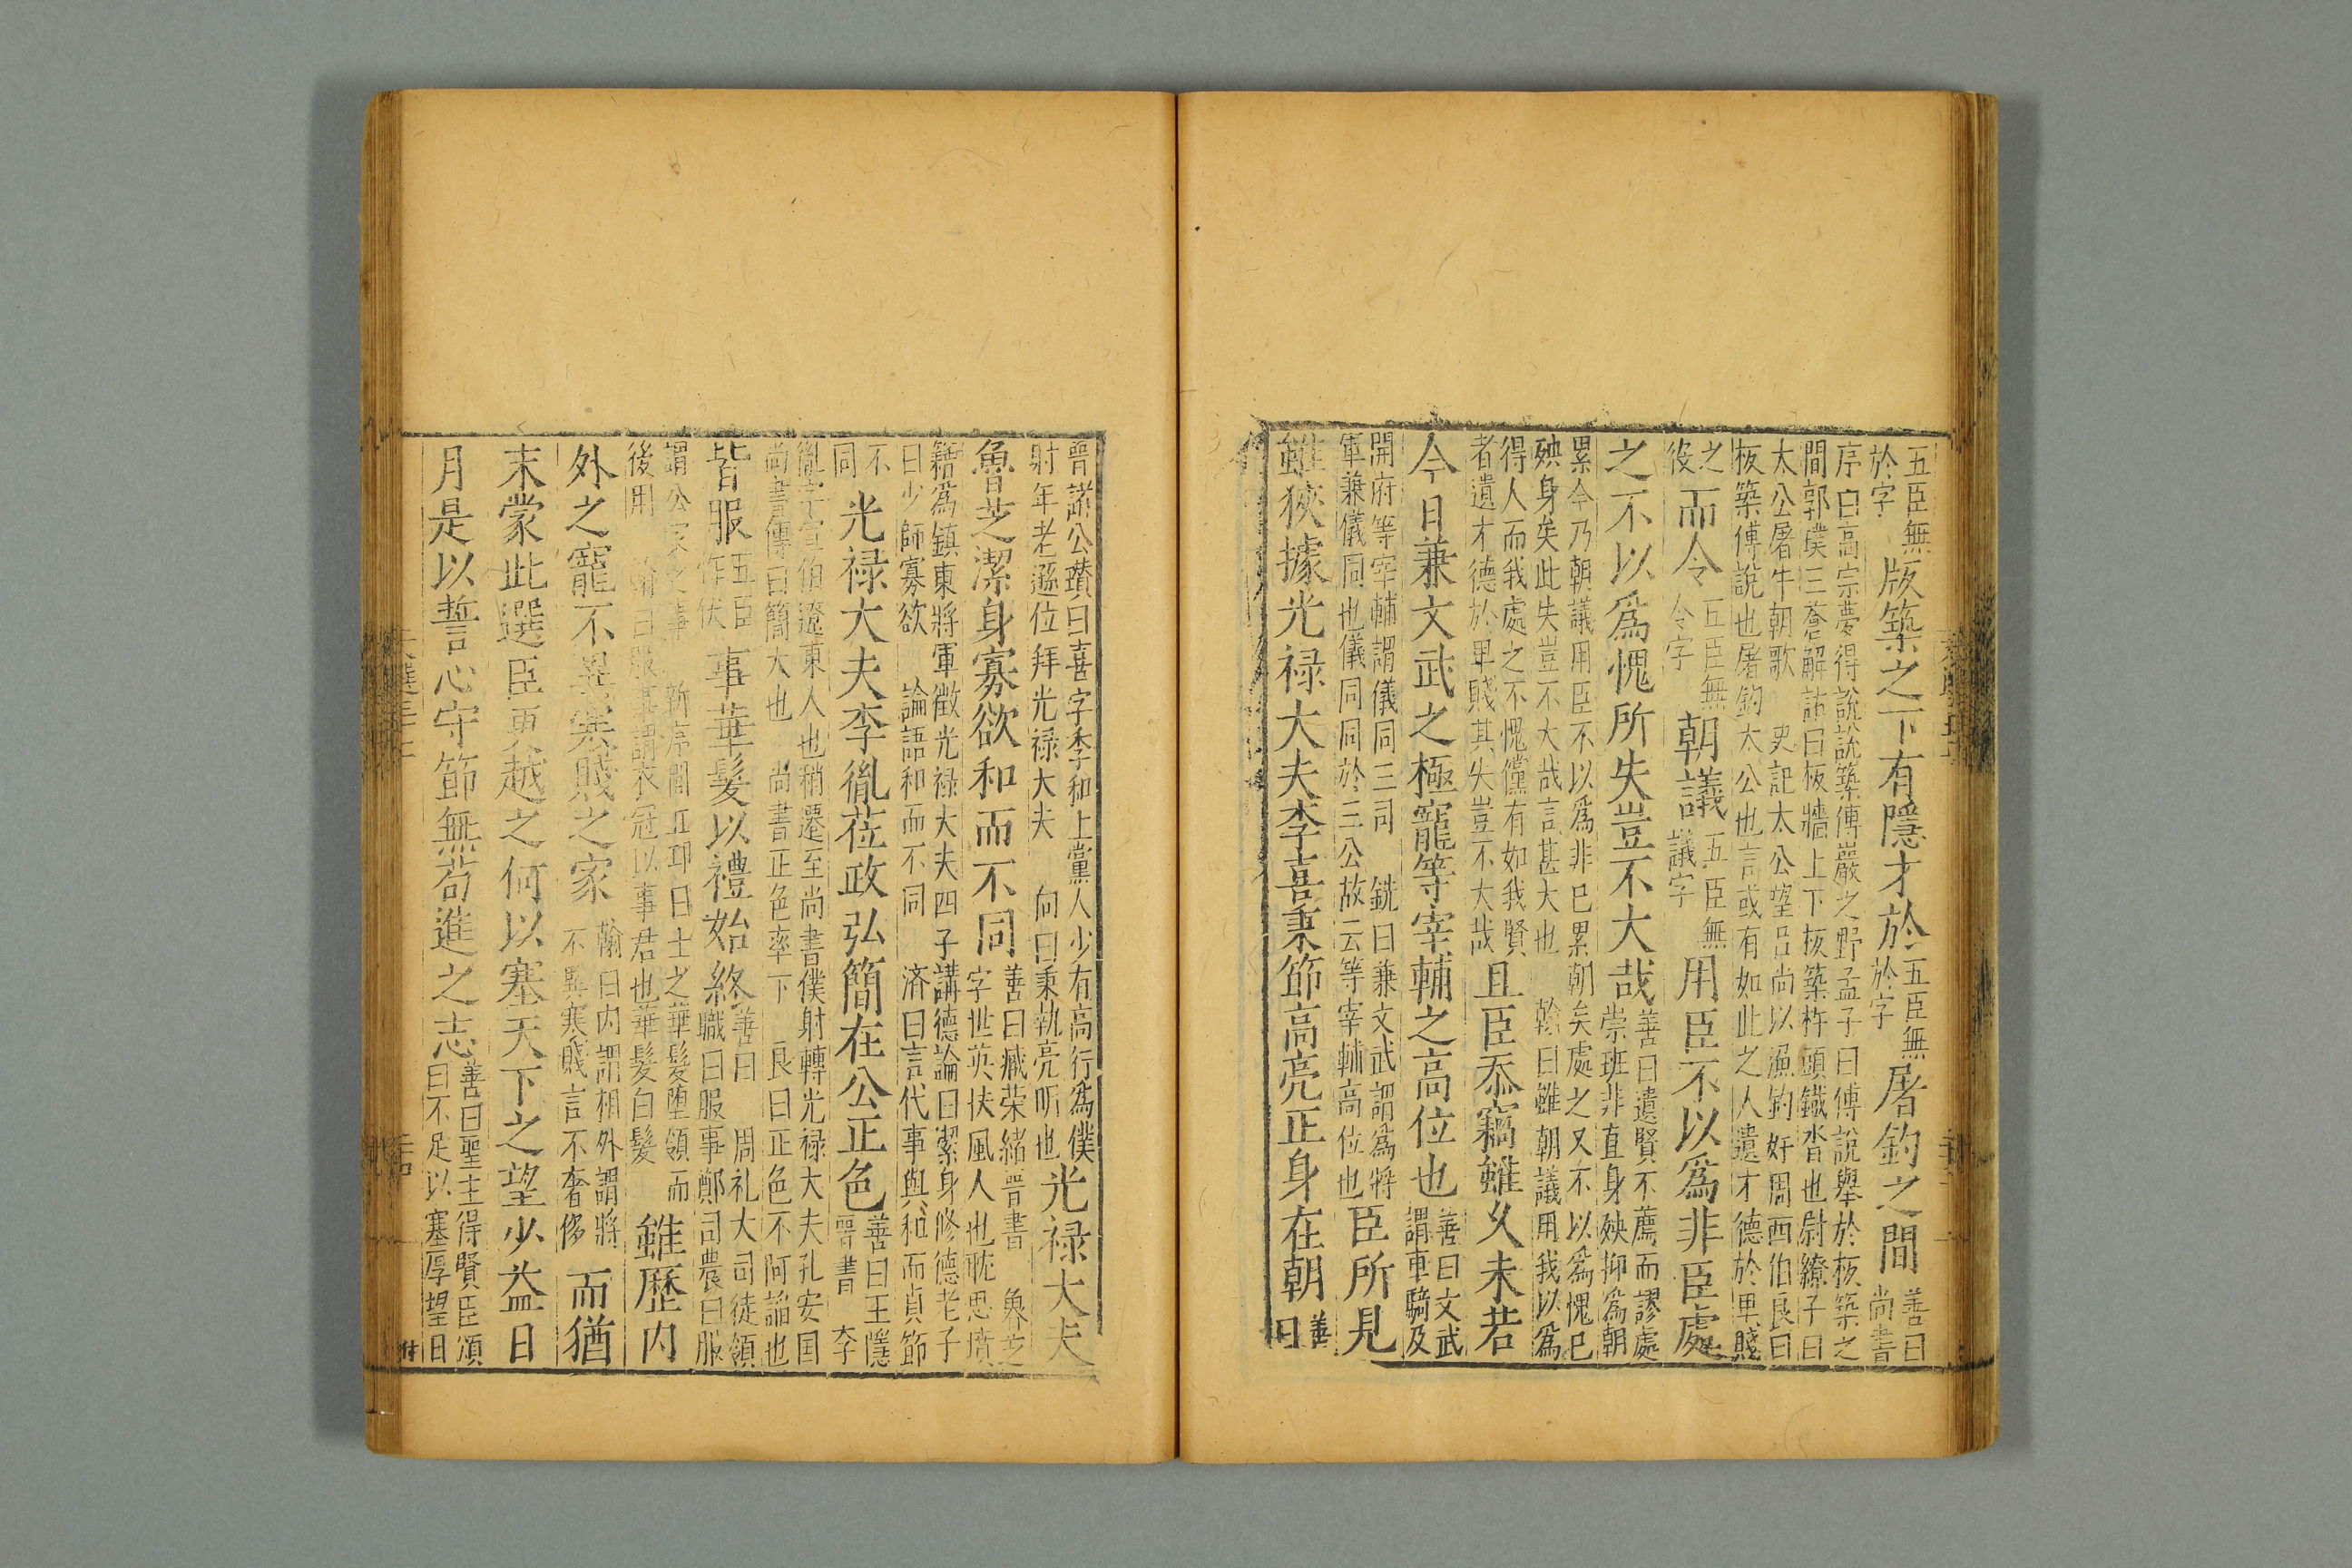 五臣無
於字
版築之下有隱才於
五臣無
於字
屠釣之間
善曰
尚書
序曰高宗夢得說說築傅巖之野孟子曰傅說舉於板築之
間郭璞三蒼解詁曰板牆上下板築杵頭鐵沓也尉繚子曰
太公屠牛朝歌 史記太公望呂尚以漁釣奸周西伯良曰
板築傅說也屠釣太公也言或有如此之人遺才德於卑賤
之
役
而令
五臣無
令字
朝議
五臣無
議字
用臣不以爲非臣處
之不以爲愧所失豈不大哉
善曰遺賢不薦而謬處
崇班非直身殃抑爲朝
累今乃朝議用臣不以爲非已累朝矣處之又不以爲愧已
殃身矣此失豈不大哉言甚大也 翰曰雖朝議用我以爲
得人而我處之不愧儻有如我賢
者遺才德於卑賤其失豈不大哉
且臣忝竊雖久未若
今日兼文武之極寵等宰輔之高位也
善曰文武
謂車騎及
開府等宰輔謂儀同三司 銑曰兼文武謂爲將
軍兼儀同也儀同同於三公故云等宰輔高位也
臣所見
雖狹據光禄大夫李喜秉節高亮正身在朝
善
曰
晉諸公讚曰喜字季和上黨人少有高行爲僕
射年老遜位拜光禄大夫 向曰秉執亮明也
光禄大夫
魯芝潔身寡欲和而不同
善曰臧荣緒晉書 魯芝
字世英扶風人也耽思墳
籍爲鎮東將軍徵光禄大夫四子講德論曰潔身修德老子
曰少師寡欲 論語和而不同 濟曰言代事與和而貞節
不
同
光禄大夫李胤莅政弘簡在公正色
善曰王隱
晉書 李
胤字宣伯遼東人也稍遷至尚書僕射轉光禄大夫孔安国
尚書傳曰簡大也 尚書正色率下 良曰正色不阿諂也
皆服
五臣
作伏
事華髮以禮始終
善曰 周礼大司徒領
職曰服事鄭司農曰服
謂公家之事 新序閭丘卭曰士之華髮墮領而
後用 翰曰服事謂衣冠以事君也華髮白髮
雖歷内
外之寵不異寒賤之家
翰曰内謂相外謂將
不異寒賤言不奢侈
而猶
未蒙此選臣更越之何以塞天下之望少益日
月是以誓心守節無苟進之志
善曰聖主得賢臣頌
曰不足以塞厚望日